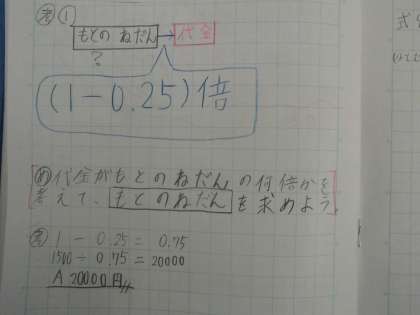 考①
もとの ねだん→代金
?
(1-0.25)倍
め 代金がもとのねだんの何倍かを
考えて、もとのねだんを求めよう。
考 1 - 0.25 = 0.75
÷ 0.75 = 20000
A 20000円